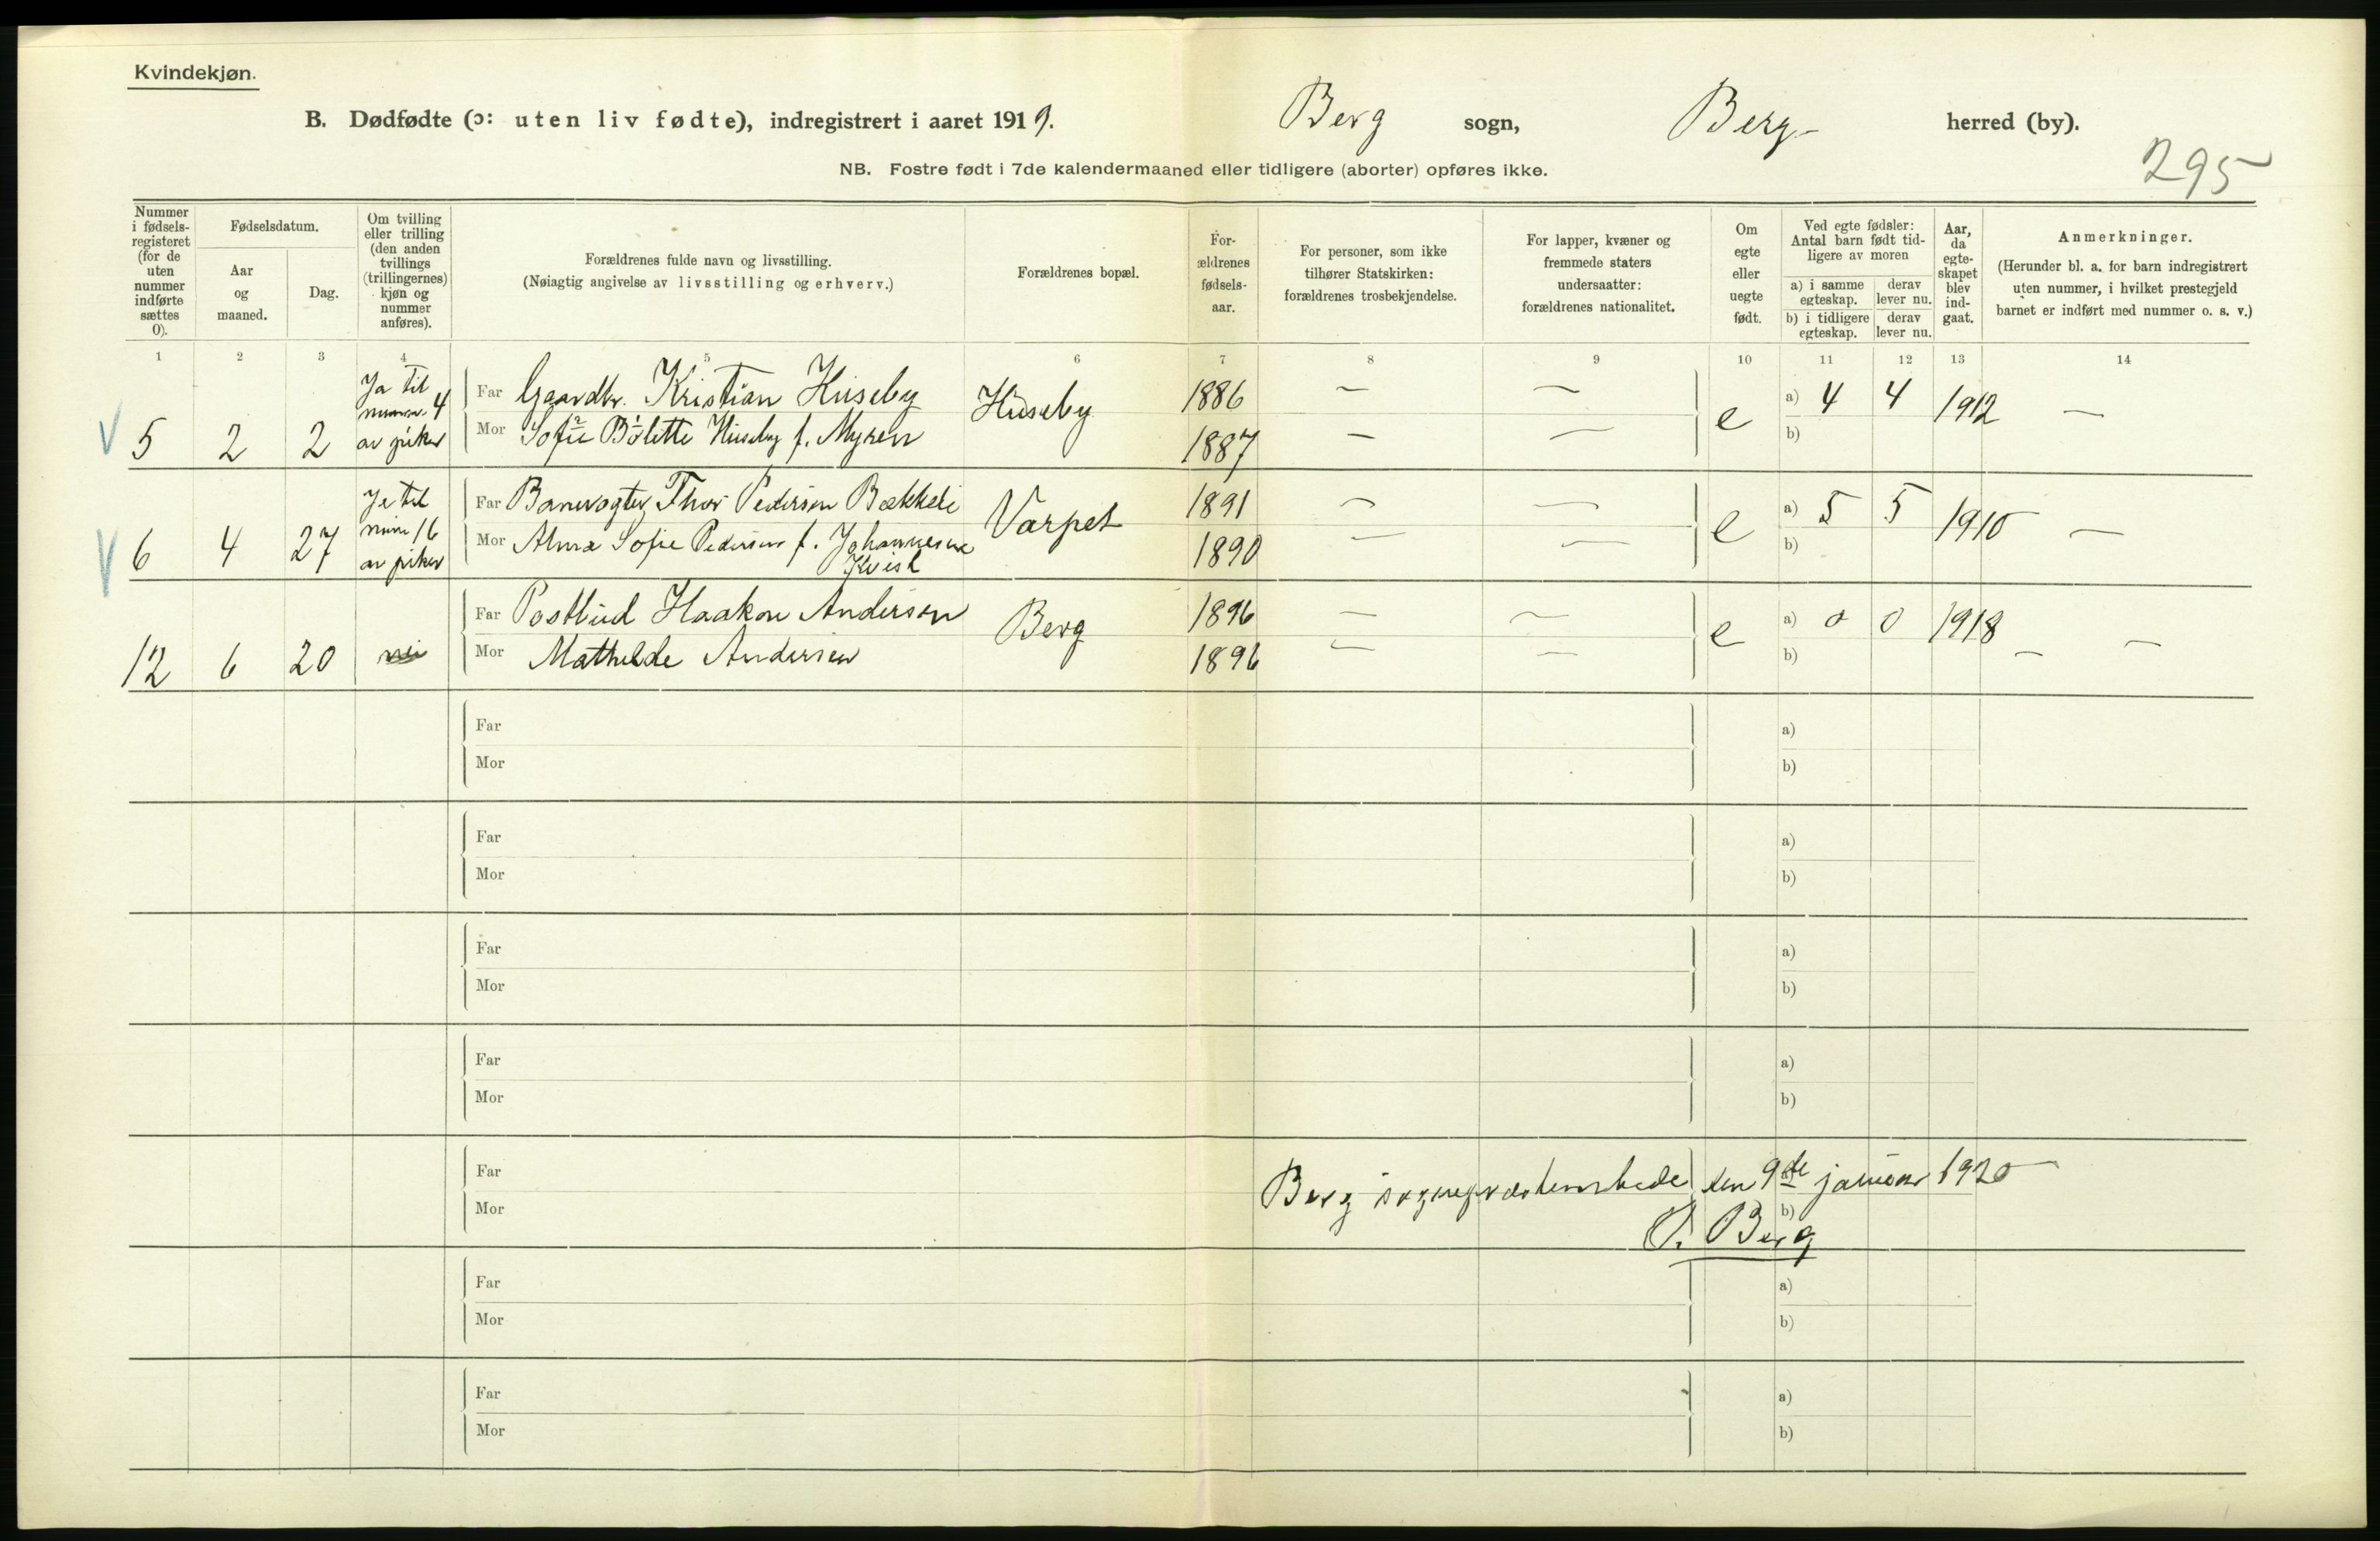 Kvindekjøn.
B. Dødfødte (ɔ: uten liv fødte), indregistrert i aaret 1919. Berg sogn, Berg herred (by).
NB. Fostre født i 7de kalendermaaned eller tidligere (aborter) opføres ikke.
295
Nummer i fødsels-registeret (for de uten nummer indførte sættes 0).
Fødselsdatum.
Aar og maaned.
Dag.
Om tvilling eller trilling (den anden tvillings (trillingernes) kjøn og nummer anføres).
Forældrenes fulde navn og livsstilling.
(Nøiagtig angivelse av livsstilling og erhverv.)
Forældrenes bopæl.
For-ældrenes fødsels-aar.
For personer, som ikke tilhører Statskirken: forældrenes trosbekjendelse.
For lapper, kvæner og fremmede staters undersaatter: forældrenes nationalitet.
Om egte eller uegte født.
Ved egte fødsler: Antal barn født tid-ligere av moren
a) i samme egteskap.
derav lever nu.
b) i tidligere egteskap.
derav lever nu.
Aar, da egte-skapet blev ind-gaat.
Anmerkninger.
(Herunder bl. a. for barn indregistrert uten nummer, i hvilket prestegjeld barnet er indført med nummer o. s. v.)
1 2 3 4 5 6 7 8 9 10 11 12 13 14
V 5 2 2 Ja til numer 4 av piker
Far Gaardbr. Kristian Huseby Huseby 1886 — — e a) 4 4 1912 —
Mor Sofie Bolette Huseby f. Myren 1887 — — b)
V 6 4 27 Ja til num 16 av piker
Far Banevogter Thor Pedersen Bækkeli Varpet 1891 — — e a) 5 5 1910 —
Mor Alma Sofie Pedersen f. Johannesen 1890 — — b)
Kvist
12 6 20 nei
Far Postbud Haakon Andersen Berg 1896 — — e a) 0 0 1918 — —
Mor Mathilde Andersen 1896 — — b)
Far a)
Mor b)
Far a)
Mor b)
Far a)
Mor b)
Far a)
Mor b)
Far
Berg sogneprestembede den 9de januar 1920
Mor b)
P. Berg
Far a)
Mor b)
Far a)
Mor b)